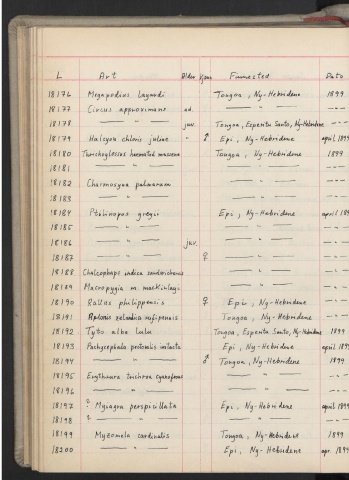 L Art Alder Kjønn Funnsted Dato
18176 Megapodius layardi Tongoa, Ny-Hebridene 1899
18177 Circus approximans ad. — " — ---
18178 — " — juv. Tongoa, Espiritu Santo, Ny-Hebridene
18179 Halcyon chloris juliae " ♂ Epi, Ny-Hebridene april 1899
18180 Trichoglossus haematod. massena Tongoa, Ny-Hebridene 1899
18181 — " — — " — ---
18182 Charmosyna palmarum — " — ---
18183 — " — — " — ---
18184 Ptilinopus greyii Epi, Ny-Hebridene april 1899
18185 — " — — " — ---
18186 — " — juv. — " — ---
18187 — " — ♀ — " — ---
18188 Chalcophaps indica sandwichensis — " — ---
18189 Macropygia m. mackinlayi — " — ---
18190 Rallus philippensis ♀ Epi, Ny-Hebridene
18191 Aplonis zelandica rufipennis Tongoa, Ny-Hebridene
18192 Tyto alba lulu Tongoa, Espiritu Santo, Ny-Hebridene 1899
18193 Pachycephala pectoralis intacta Epi, Ny-Hebridene april 1899
18194 — " — ♂ Tongoa, Ny-Hebridene 1899
18195 Erythrura trichroa cyanofrons — " — ---
18196 — " — — " — ---
18197 ? Myiagra perspicillata Epi, Ny-Hebridene april 1899
18198 ? — " — — " — ---
18199 Myzomela cardinalis Tongoa, Ny-Hebridene 1899
18200 — " — Epi, Ny-Hebridene apr. 1899